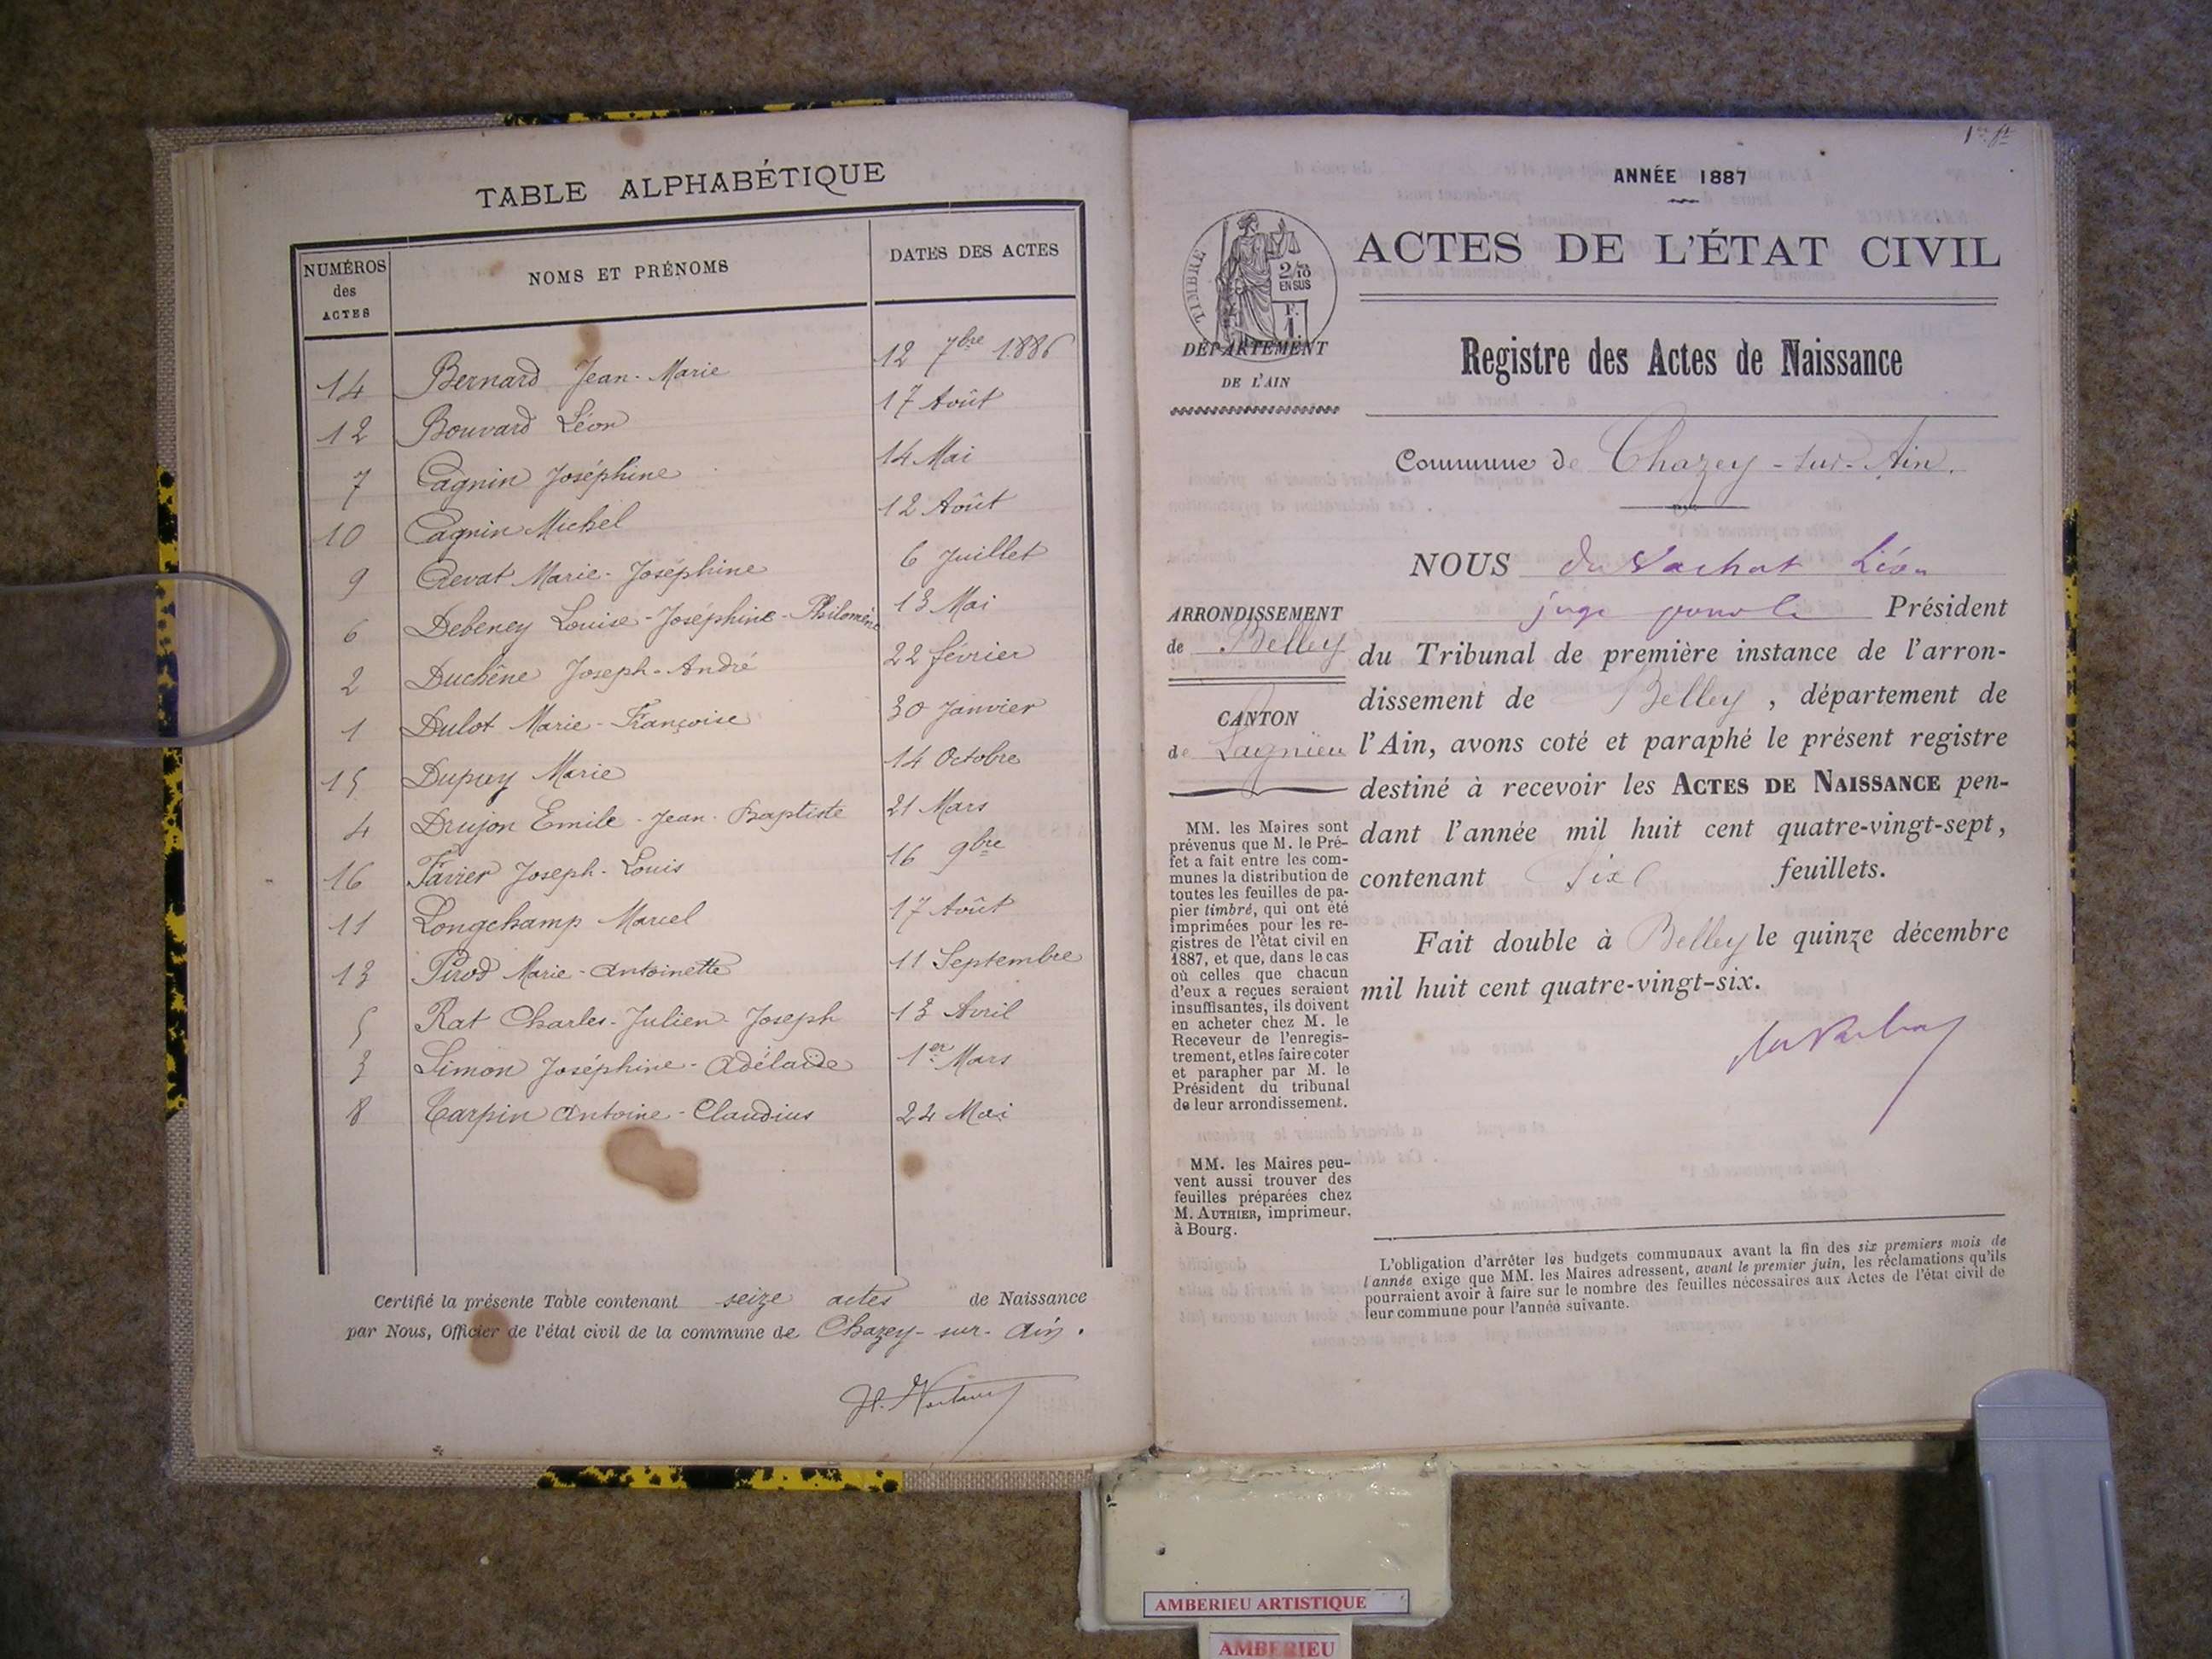 TABLE ALPHABÉTIQUE
NUMÉROS
des
ACTES
NOMS ET PRÉNOMS
DATES DES ACTES
14 Bernard Jean-Marie 12 7bre 1886
12 Bouvard Léon 17 Août
7 Cagnin Joséphine 14 Mai
10 Cagnin Michel 12 Août
9 Crevat Marie-Joséphine 6 Juillet
6 Debeney Louise-Joséphine-Philomène 13 Mai
2 Duchêne Joseph-André 22 février
1 Dulot Marie-Françoise 30 Janvier
15 Dupuy Marie 14 Octobre
4 Drujon Emile-Jean-Baptiste 21 Mars
16 Favier Joseph-Louis 16 9bre
11 Longchamp Marcel 17 Août
13 Pirod Marie-Antoinette 11 Septembre
5 Rat Charles-Julien-Joseph 13 Avril
3 Simon Joséphine-Adélaïde 1er Mars
8 Tarpin Antoine-Claudius 22 Mai
Certifié la présente Table contenant seize actes de Naissance
par Nous, Officier de l'état civil de la commune de Chazey-sur-Ain.
ANNÉE 1887
TIMBRE
2/10
EN SUS
F.
1.
ACTES DE L'ÉTAT CIVIL
DÉPARTEMENT
DE L'AIN
Registre des Actes de Naissance
Commune de Chazey-sur-Ain.
ARRONDISSEMENT
de Belley
CANTON
de Lagnieu
MM. les Maires sont
prévenus que M. le Pré-
fet a fait entre les com-
munes la distribution de
toutes les feuilles de pa-
pier timbré, qui ont été
imprimées pour les re-
gistres de l'état civil en
1887, et que, dans le cas
où celles que chacun
d'eux a reçues seraient
insuffisantes, ils doivent
en acheter chez M. le
Receveur de l'enregis-
trement, et les faire coter
et parapher par M. le
Président du tribunal
de leur arrondissement.
MM. les Maires peu-
vent aussi trouver des
feuilles préparées chez
M. AUTHIER, imprimeur,
à Bourg.
NOUS du Vachat Léon
juge pour le Président
du Tribunal de première instance de l'arron-
dissement de Belley, département de
l'Ain, avons coté et paraphé le présent registre
destiné à recevoir les ACTES DE NAISSANCE pen-
dant l'année mil huit cent quatre-vingt-sept,
contenant six feuillets.
Fait double à Belley le quinze décembre
mil huit cent quatre-vingt-six.
L'obligation d'arrêter les budgets communaux avant la fin des six premiers mois de
l'année exige que MM. les Maires adressent, avant le premier juin, les réclamations qu'ils
pourraient avoir à faire sur le nombre des feuilles nécessaires aux Actes de l'état civil de
leur commune pour l'année suivante.
AMBERIEU ARTISTIQUE
AMBERIEU